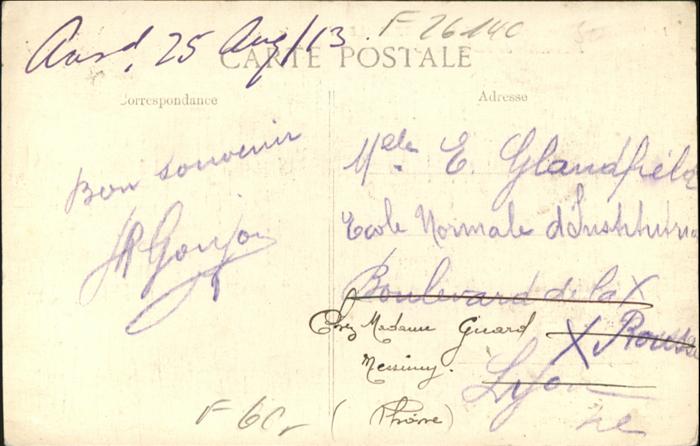 25 Aug/13
F 26140
CARTE POSTALE
Correspondance
Adresse
Bon souvenir
Goujon
Mele. E. Glandfield
Ecole Normale d'Institutri
Boulevard de la X
Chez Madame Girard
X Rousse
Messimy.
Lyon
(Rhône)